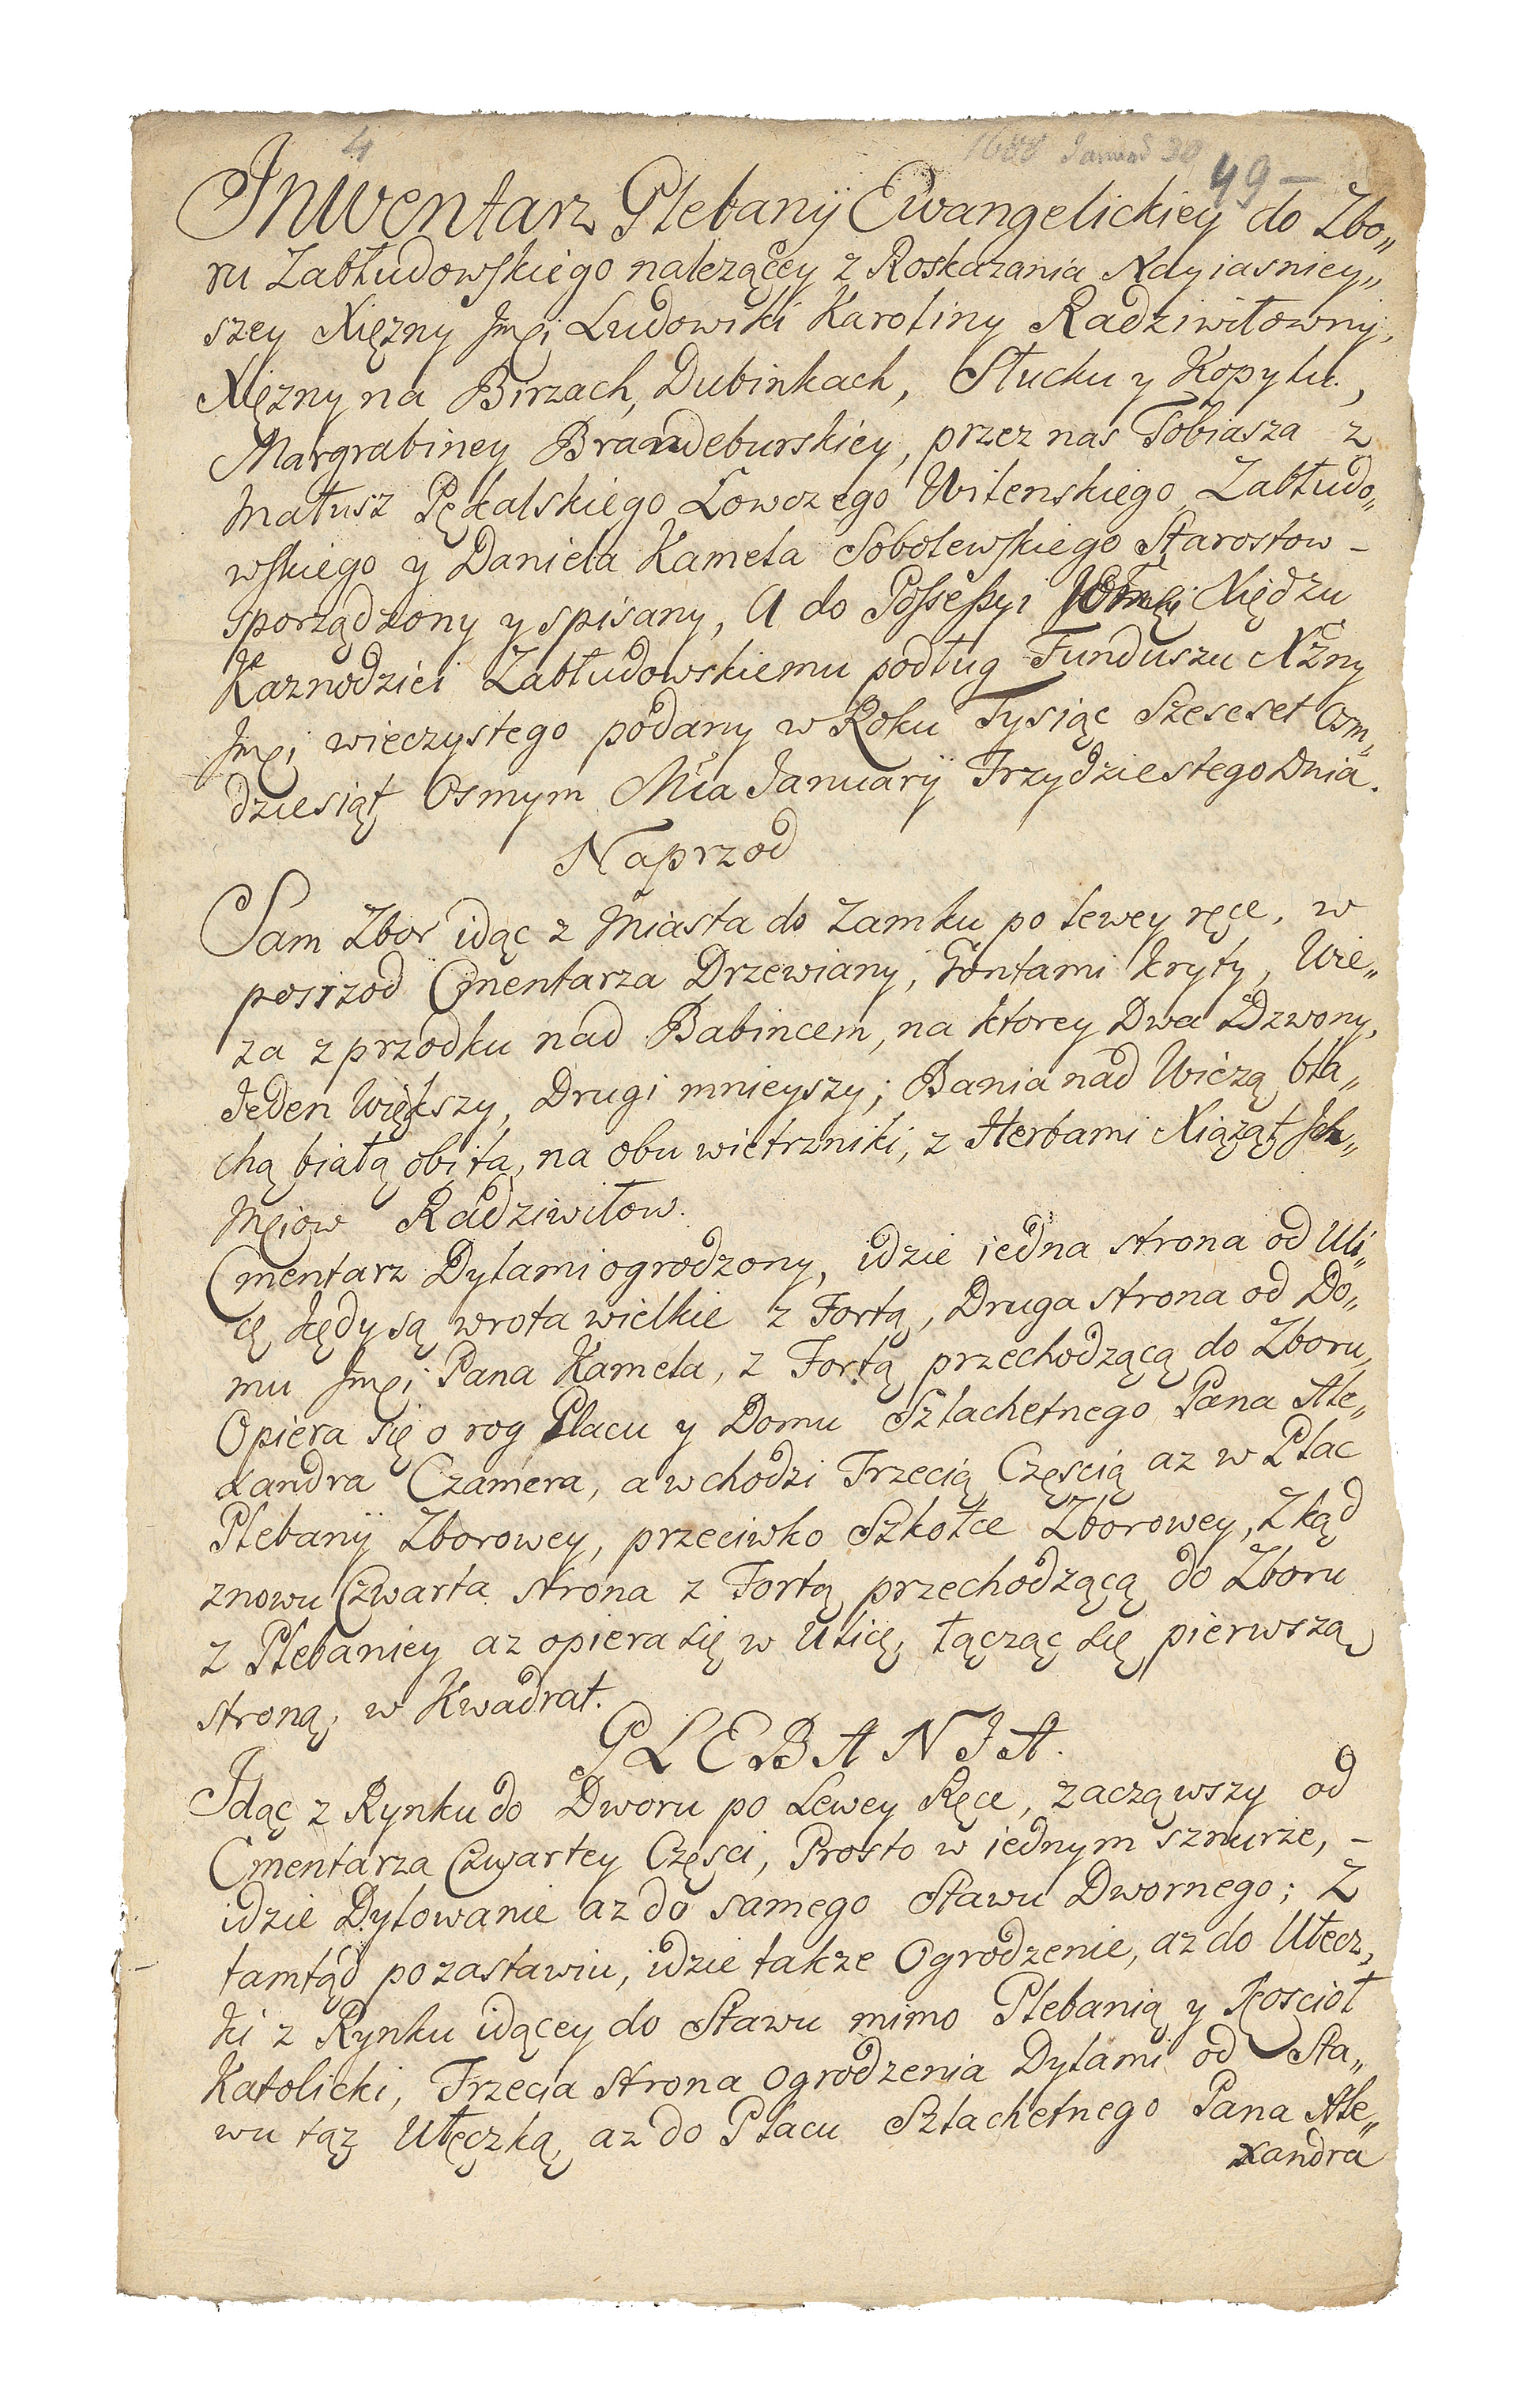 4
1688 Januar 30
49 —
Inwentarz Plebanÿ Ewangelickiey do Zbo„
ru Zabłudowskiego należącey z Roskazania Nayiasniey„
szey Xięzny Jmçi Ludowiki Karoliny Radziwiłowny,
Xięzny na Birzach, Dubinkach, Słucku y Kopylu,
Margrabiney Brandeburskiey, przez nas Tobiasza z
Małusz Pękalskiego Łowczego Wilenskiego Zabłudo„
wskiego y Daniela Kamela Sobolewskiego Starostow –
sporządzony y spisany, A do Possessyi Xiędzu
Kaznodziei Zabłudowskiemu podług Funduszu Xżny
Jmçi wieczystego podany w Roku Tysiąc Szescset Osm„
dziesiąt Osmym Mca Januarÿ Trzydziestego Dnia.
Naprzod
Sam Zbor idąc z Miasta do Zamku po lewey ręce, w
posrzod Cmentarza Drzewiany, Gontami kryty, Wie„
za z przodku nad Babincem, na ktorey Dwa Dzwony,
Jeden Większy, Drugi mnieyszy; Bania nad Wieżą bla„
chą białą obita, na obu wietrzniki, z Herbami Xiążąt Ich„
Mçiow Radziwiłow.
Cmentarz Dylami ogrodzony, idzie iedna strona od Uli„
cę kędy są wrota wielkie z Fortą, Druga strona od Do„
mu Jmçi Pana Kamela, z Fortą przechodzącą do Zboru,
Opiera się o rog Placu y Domu Szlachetnego Pana Ale„
xandra Czamera, a wchodzi Trzecią Częscią az w Plac
Plebanÿ Zborowey, przeciwko Szkołce Zborowey, Zkąd
znowu Czwarta strona z Fortą przechodzącą do Zboru
z Plebaniey az opiera się w Ulicę, łącząc się pierwszą
stroną, w Kwadrat.
PLEBANIA.
Idąc z Rynku do Dworu po Lewey Ręce, zacząwszy od
Cmentarza Czwartey Częsci, Prosto w iednym sznurze, –
idzie Dylowanie az do samego Stawu Dwornego; Z
tamtąd po zastawiu, idzie takze Ogrodzenie, az do Ulecz„
ki z Rynku idącey do Stawu mimo Plebanią y Kosciół
Katolicki, Trzecia strona Ogrodzenia Dylami od Sta„
wu tąż Ulęczką az do Placu Szlachetnego Pana Ale„
xandra